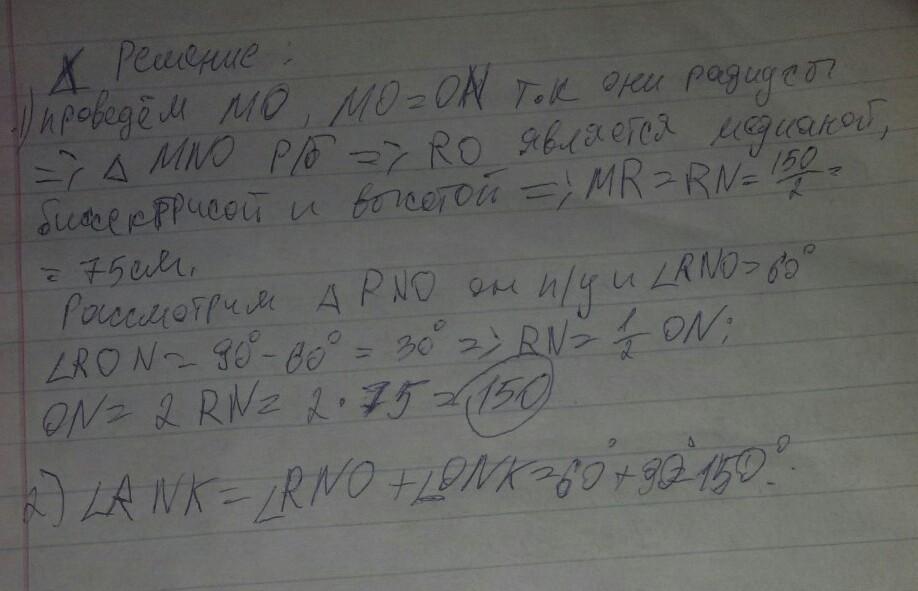 Решение:
1) проведём MO, MO=ON т.к они радиусы
=> △ MNO р/б => RO является медианой,
биссектрисой и высотой => MR=RN=150/2=
=75см.
Рассмотрим △ RNO он п/у и ∠RNO=60°
∠RON=90°-60°=30° => RN=1/2 ON;
ON=2RN=2·75=150
2) ∠RNK=∠RNO+∠ONK=60°+90=150°.